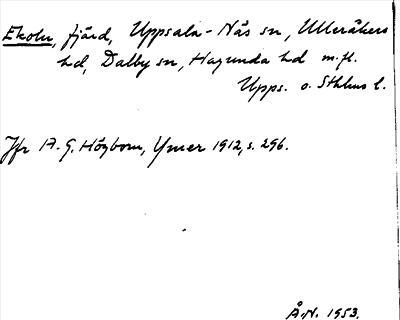 Ekoln, fjärd, Uppsala-Näs sn, Ulleråkers
hd, Dalby sn, Hagunda hd m.fl.
Upps. o. Sthlms l.
Jfr A. G. Högbom, Ymer 1912, s. 296.
Å.N. 1953.